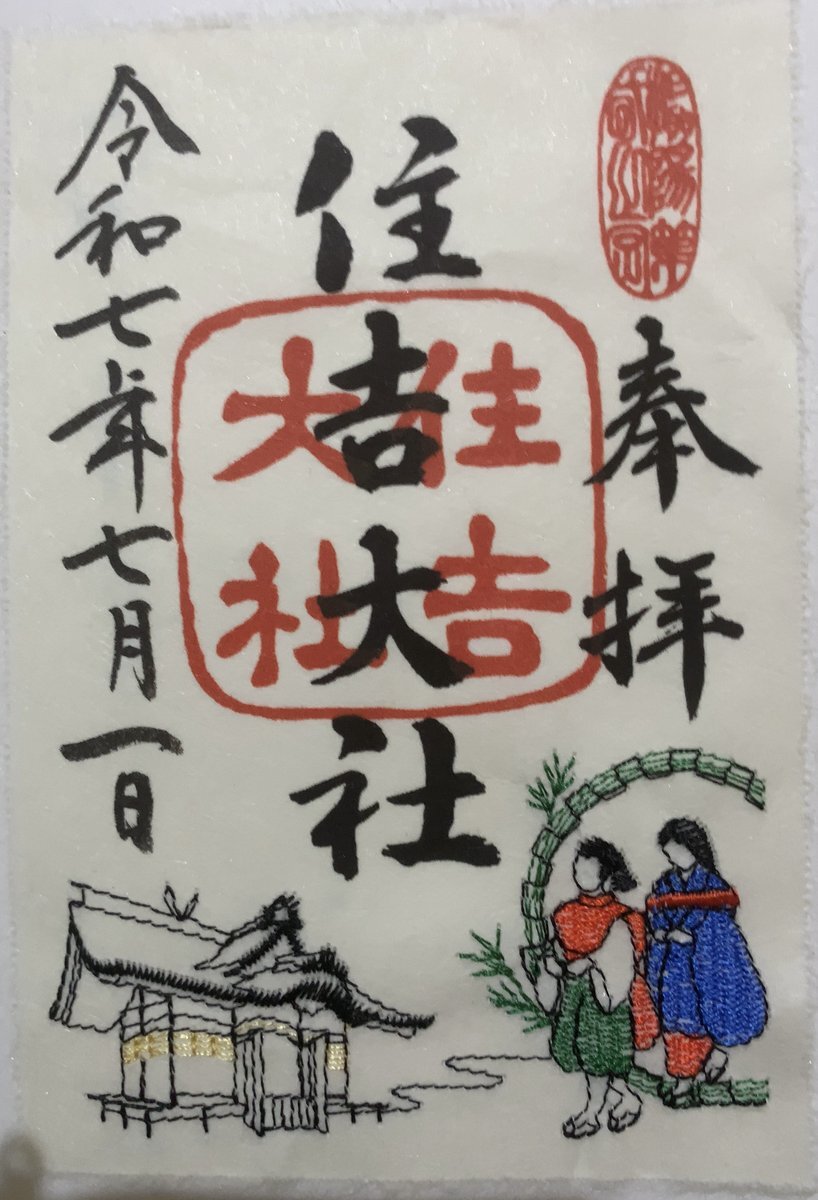 奉拝
住吉大社
住吉
大社
令和七年七月一日